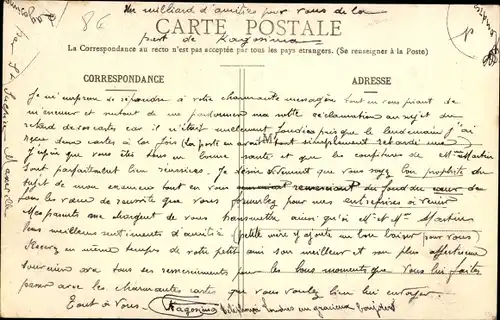 Un milliard d'amitiés pour vous de la
part de Kagosima
CARTE POSTALE
La Correspondance au recto n'est pas acceptée par tous les pays étrangers. (Se renseigner à la Poste)
CORRESPONDANCE
ADRESSE
Je m'empresse de répondre à votre charmante missive tout en vous priant de
m'excuser et surtout de me pardonner ma sotte réclamation au sujet du
retard de vos cartes car il n'était nullement fondé puisque le lendemain j'ai
reçu deux cartes à la fois (la poste en avait tout simplement retardé une)
J'espère que vous êtes tous en bonne santé et que les confitures de Mme Martin
sont parfaitement bien réussies. Je désire vivement que vous soyez bon prophète du
sujet de mon examen tout en vous remerciant du fond du cœur de
tous les vœux de réussite que vous formulez pour mes entreprises à venir
Mes parents me chargent de vous transmettre ainsi qu'à Mr et Mme Martin
leurs meilleurs sentiments d'amitié (petite mère y ajoute un bon baiser pour vous)
Recevez en même temps de votre petit ami son meilleur et son plus affectueux
souvenir avec tous ses remerciements pour les bons moments que vous lui faites
passer avec les charmantes cartes que vous voulez bien lui envoyer.
Tout à vous. Kagosima